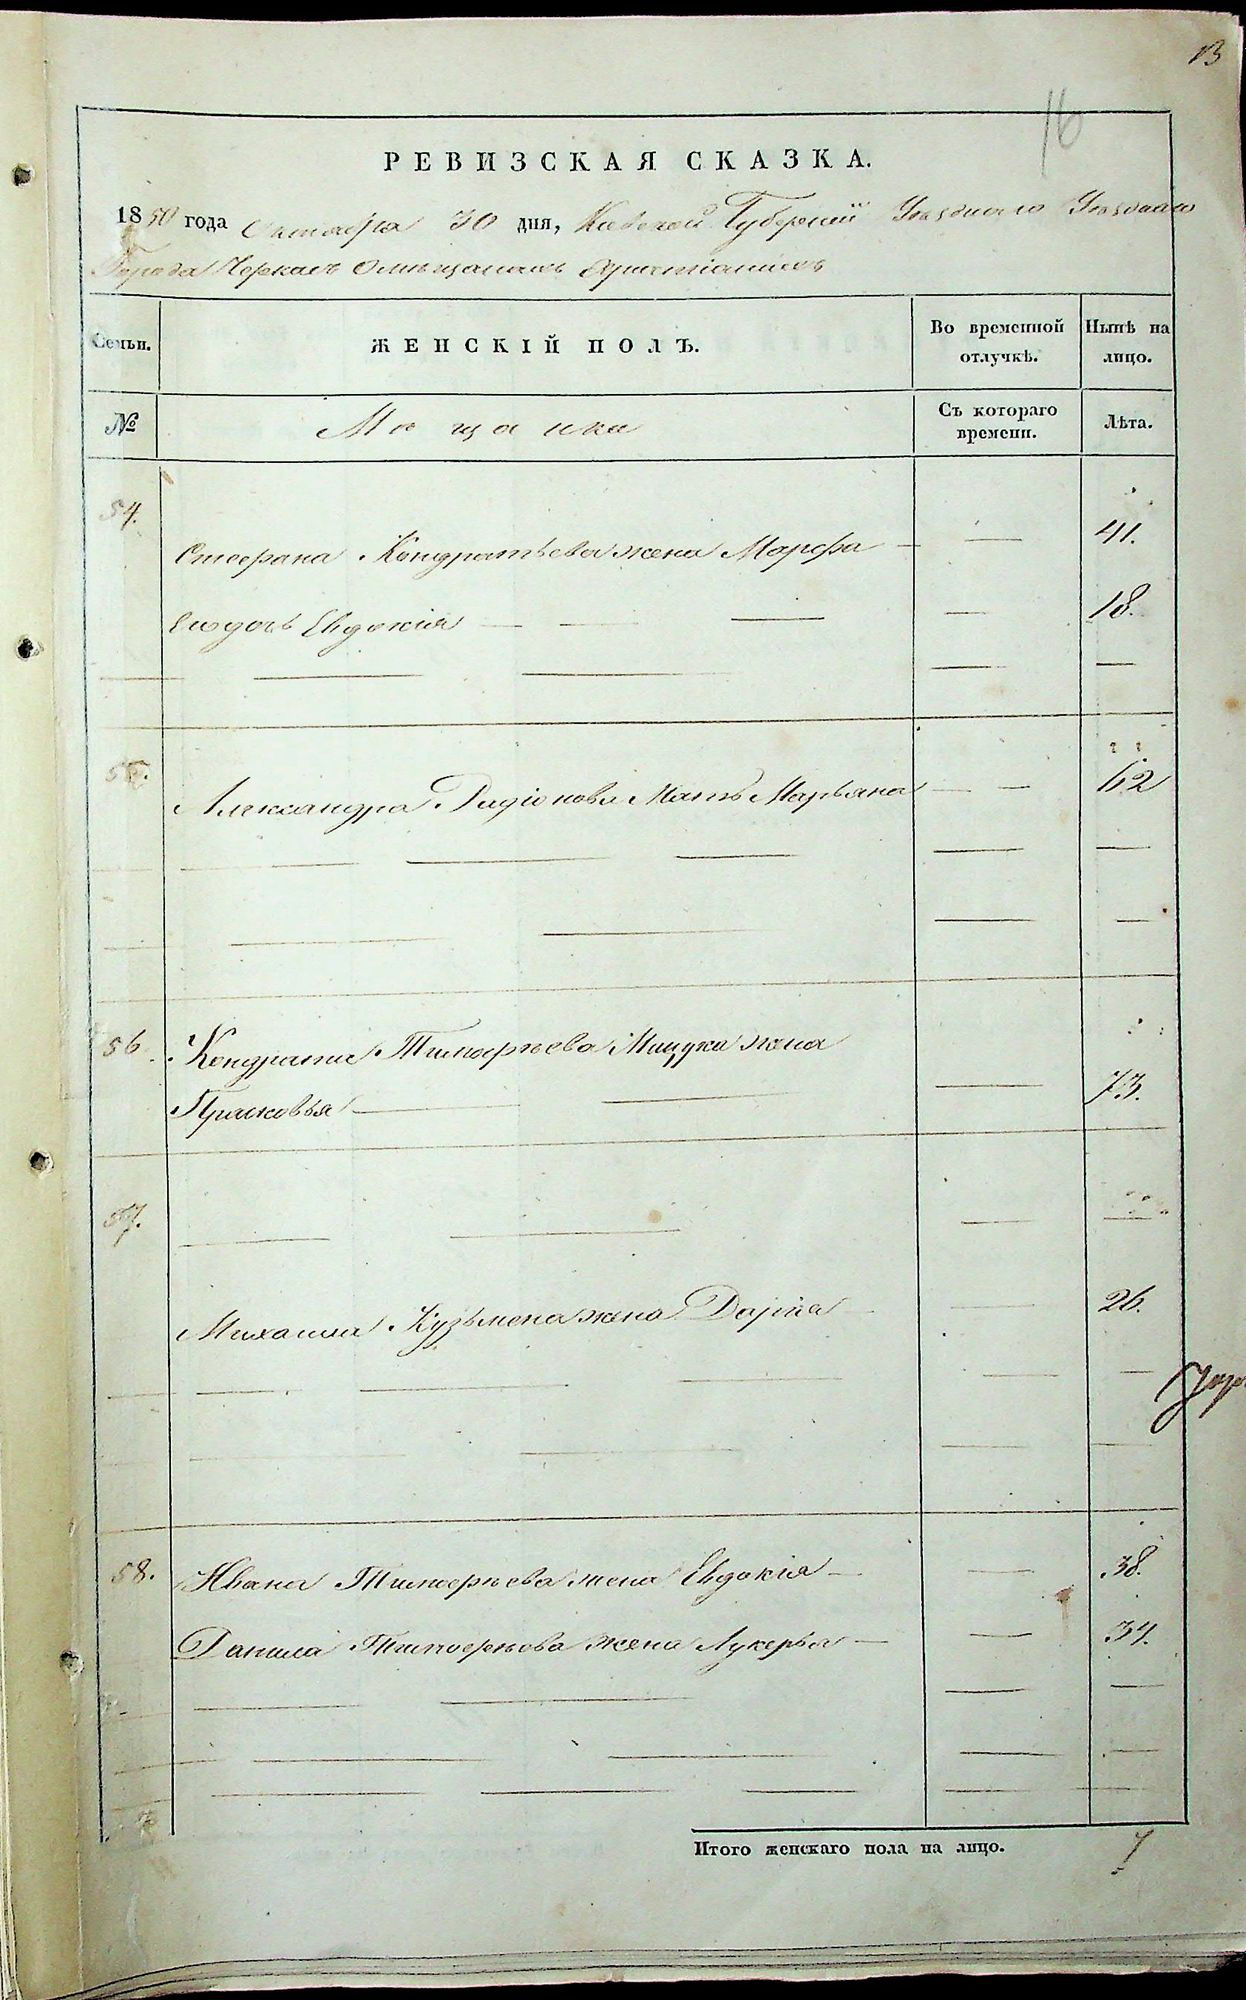 13
16
РЕВИЗСКАЯ СКАЗКА.
1850 года Октября 30 дня, Киевской Губернии Уезднаго
Города Черкасъ Омещанахъ Христианахъ
Семьи.
ЖЕНСКІЙ ПОЛЪ.
Во временной отлучкѣ.
Нынѣ на лицо.
№
Мещанки
Съ котораго времени.
Лѣта.
54.
Стефана Кондратьева жена Марфа 41.
Егодочь Евдокія 18.
55.
Александра Радіонова Мать Марьяна 62
56.
Кондрата Тимофѣева Мицука жена
Прасковья 73.
57.
Михаила Кузьмена жена Дарiя 26.
58.
Ивана Тимофѣева жена Евдокія 38.
Данила Тимофѣева жена Лукерья 34.
Итого женскаго пола на лицо. 7